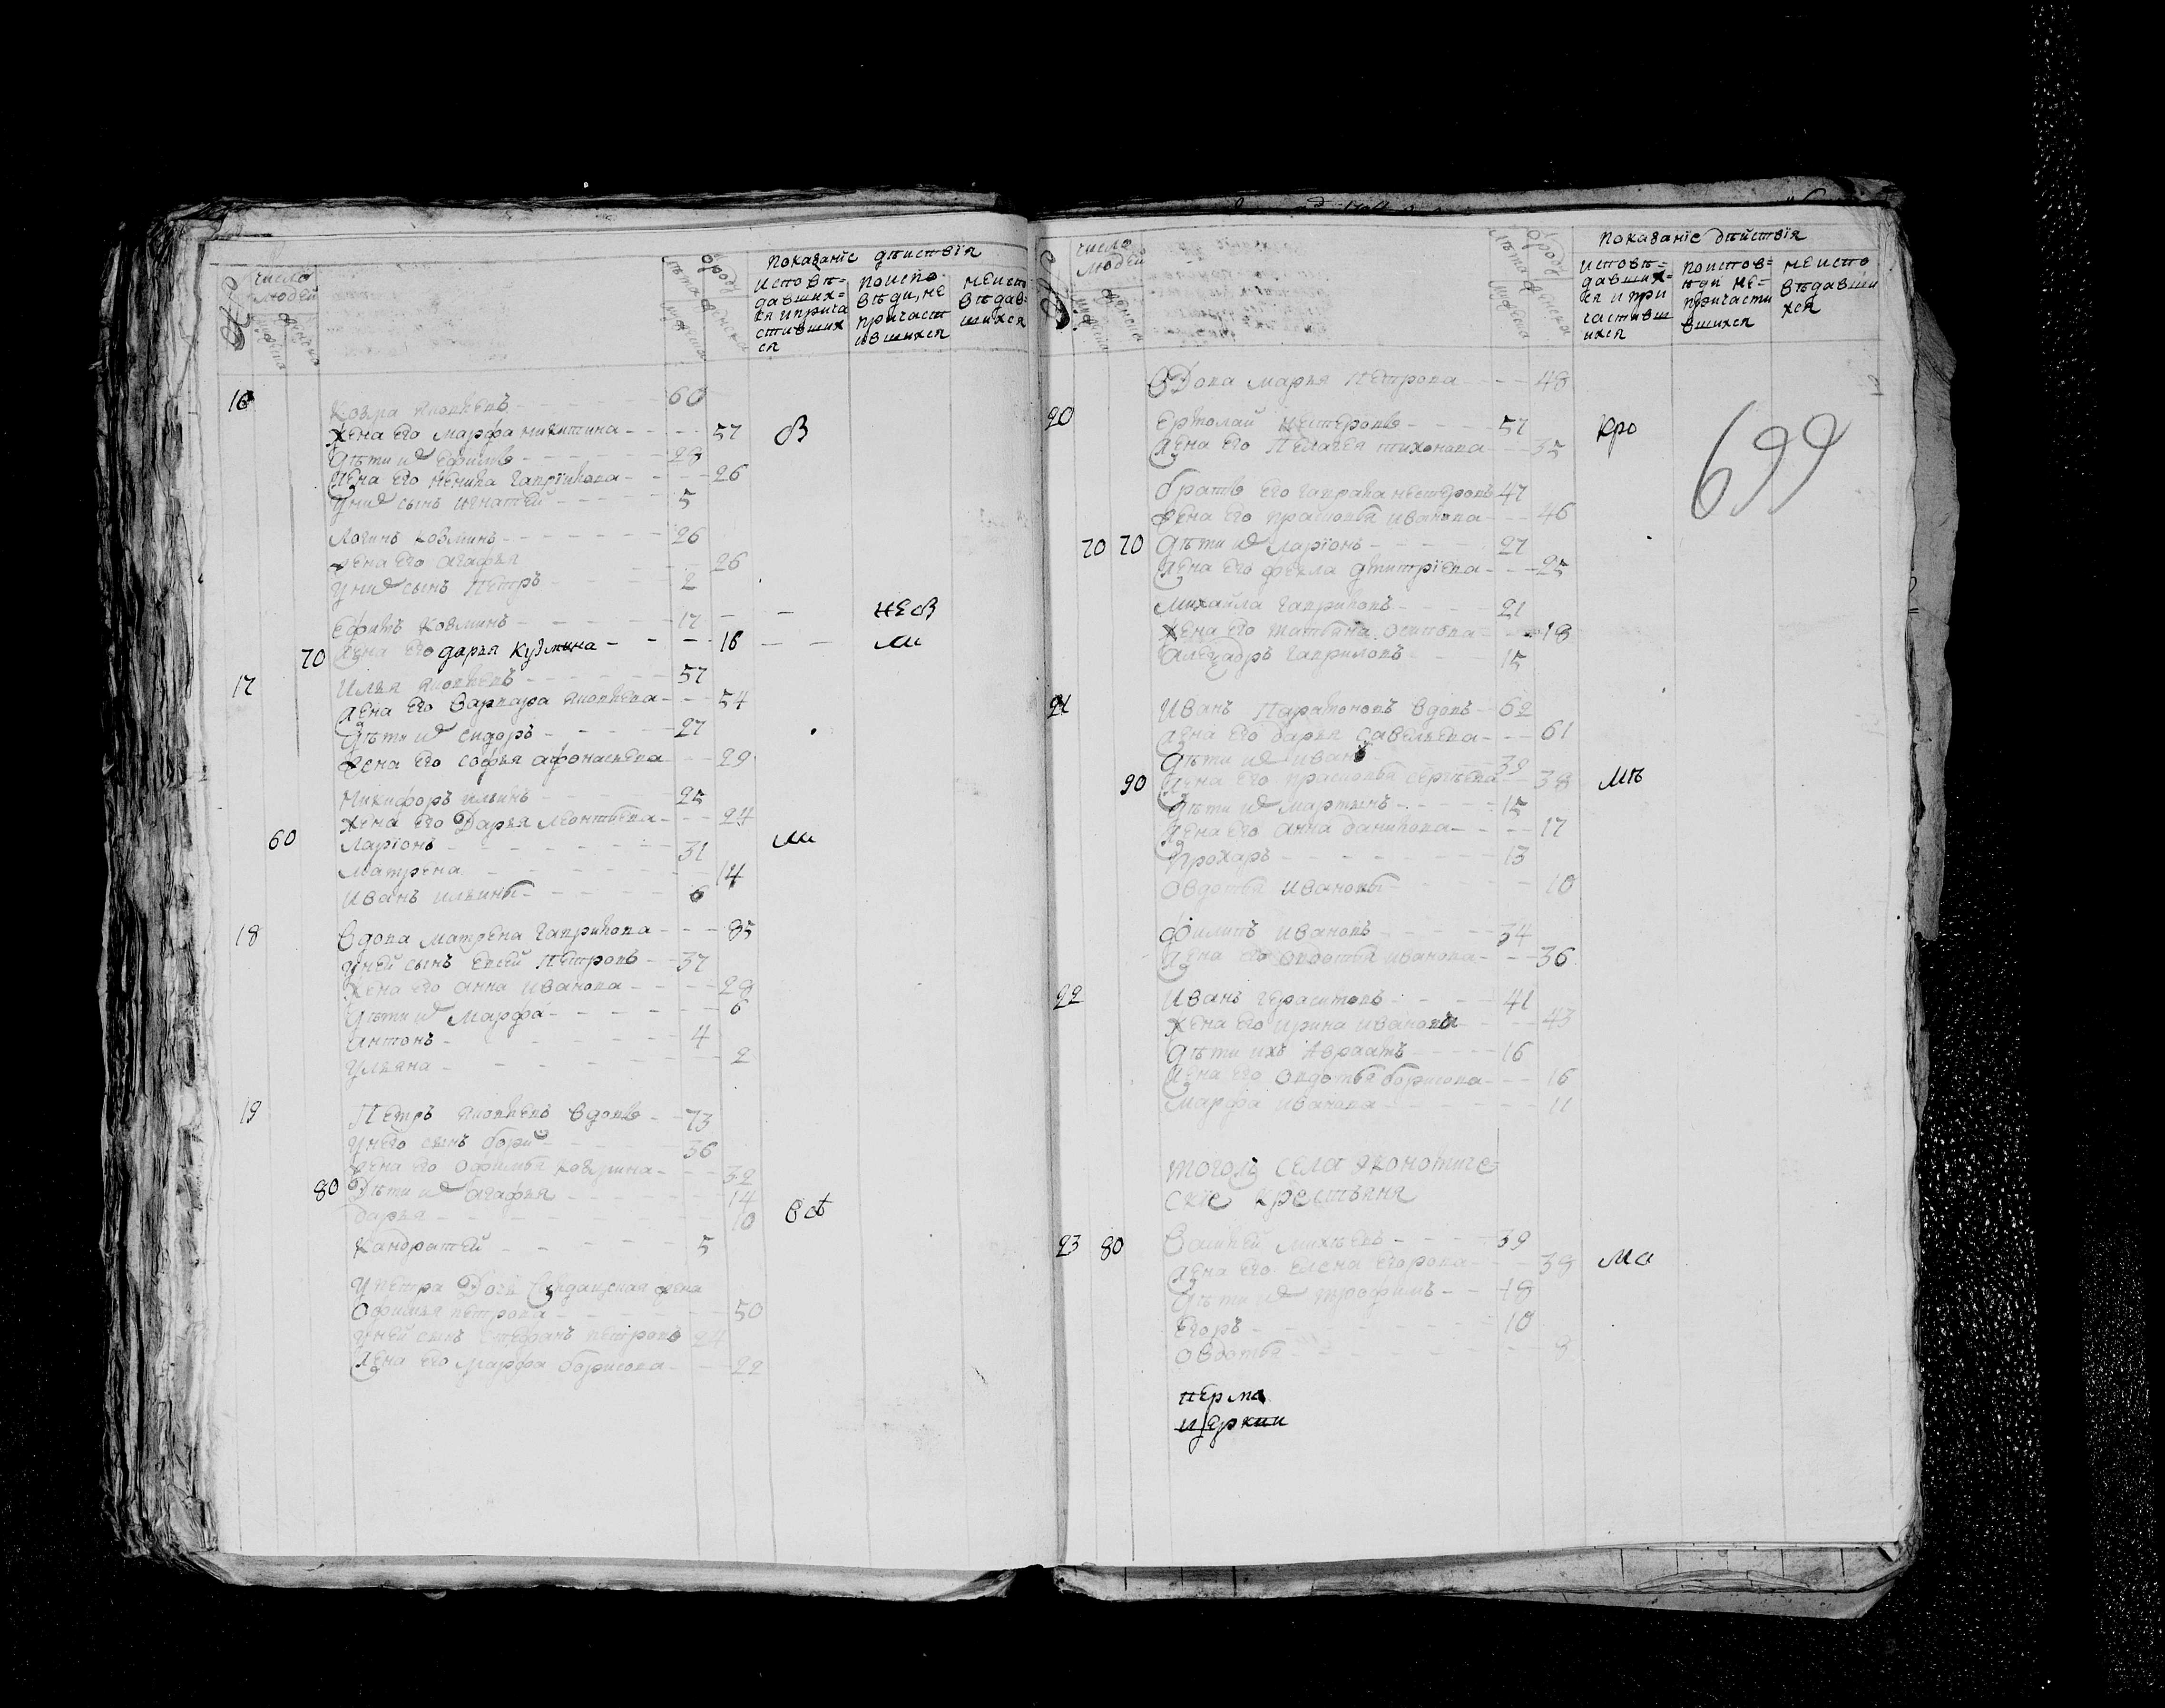 число людей
мужеска
женска
лѣта ѿ роду
мужеска
женска
показанїе дѣиствїя
исповѣ=
давших=
ся и прича
стивших
ся
по испо
вѣди, не
причаст
ившихся
не испо
вѣдав=
шихся
16 Козма Яковлевъ 60
жена его Марфа Никитина 57 В
дѣти их Ефимъ 28
жена его Ненила Гаврилова 26
у них сынъ Игнатей 5
Логинъ Козминъ 26
жена его Агафья 26
у них сынъ Петръ 2
Ефимъ Козминъ 17 НЕВ
70 жена его дарья кузмина 18 ли
17 Илья Яковлевъ 57
жена его Варвара Яковлева 54
дѣти их Сидоръ 27
жена его Софья Афонасьева 29
Никифоръ Ильинъ 25
жена его Дарья Леонтьева 24
60 Ларїонъ 31 ли
Матрена 14
Иванъ Ильины 6
18 Вдова Матрена Гаврилова 85
у ней сынъ Евсей Петровъ 37
жена его Анна Иванова 28
дѣти их Марфа 6
Антонъ 4
Ульяна 2
19 Петръ Яковлевъ вдовъ 73
у него сынъ Борис 36
жена его Офимья Козмина 32
80 Дѣти их Агафья 14
Дарья 10
Кандратей 5
У Петра дочь салдацкая жена
Офимья Петрова 50
у ней сынъ Стефанъ Петровъ 24
жена его Марфа Борисова 22
число людей
мужеска
женска
лѣта ѿ роду
мужеска
женска
показанїе дѣйствїя
исповѣ=
давших=
ся и при
частивш
ихся
по испов=
ѣди не=
причасти
вшихся
не испо
вѣдавши
хся
699
Вдова Марья Петрова 48
20 Ермолай Нестеровъ 57 кро
жена его Пелагея Тихонова 35
братъ его Гаврила Нестеровъ 47
жена его Прасковья Иванова 46
70 70 дѣти их Ларїонъ 27
жена его Фекла Дмитрїева 25
Михайла Гавриловъ 21
жена его Татьяна Осипова 18
Алеѯадръ Гавриловъ 15
21 Иванъ Парамоновъ вдовъ 62
жена его Дарья Савельева 61
дѣти их Иванъ 39
90 жена его Прасковья Сергѣева 38 Мѣ
дѣти их Мартынъ 15
жена его Анна Данилова 17
Прохаръ 13
Овдотья Ивановы 10
Филипъ Ивановъ 34
жена его Овдотья Иванова 36
22 Иванъ Герасимовъ 41
жена его Ирина Иванова 43
дѣти ихъ Авраамъ 16
жена его Овдотья Борисова 16
Марфа Иванова 11
Тогожъ села экономиче=
ские крестьяня
23 80 Василей Михѣевъ 39 Ма
жена его Елена Егорова 38
дѣти их Трофимъ 18
Егоръ 10
Овдотья 8